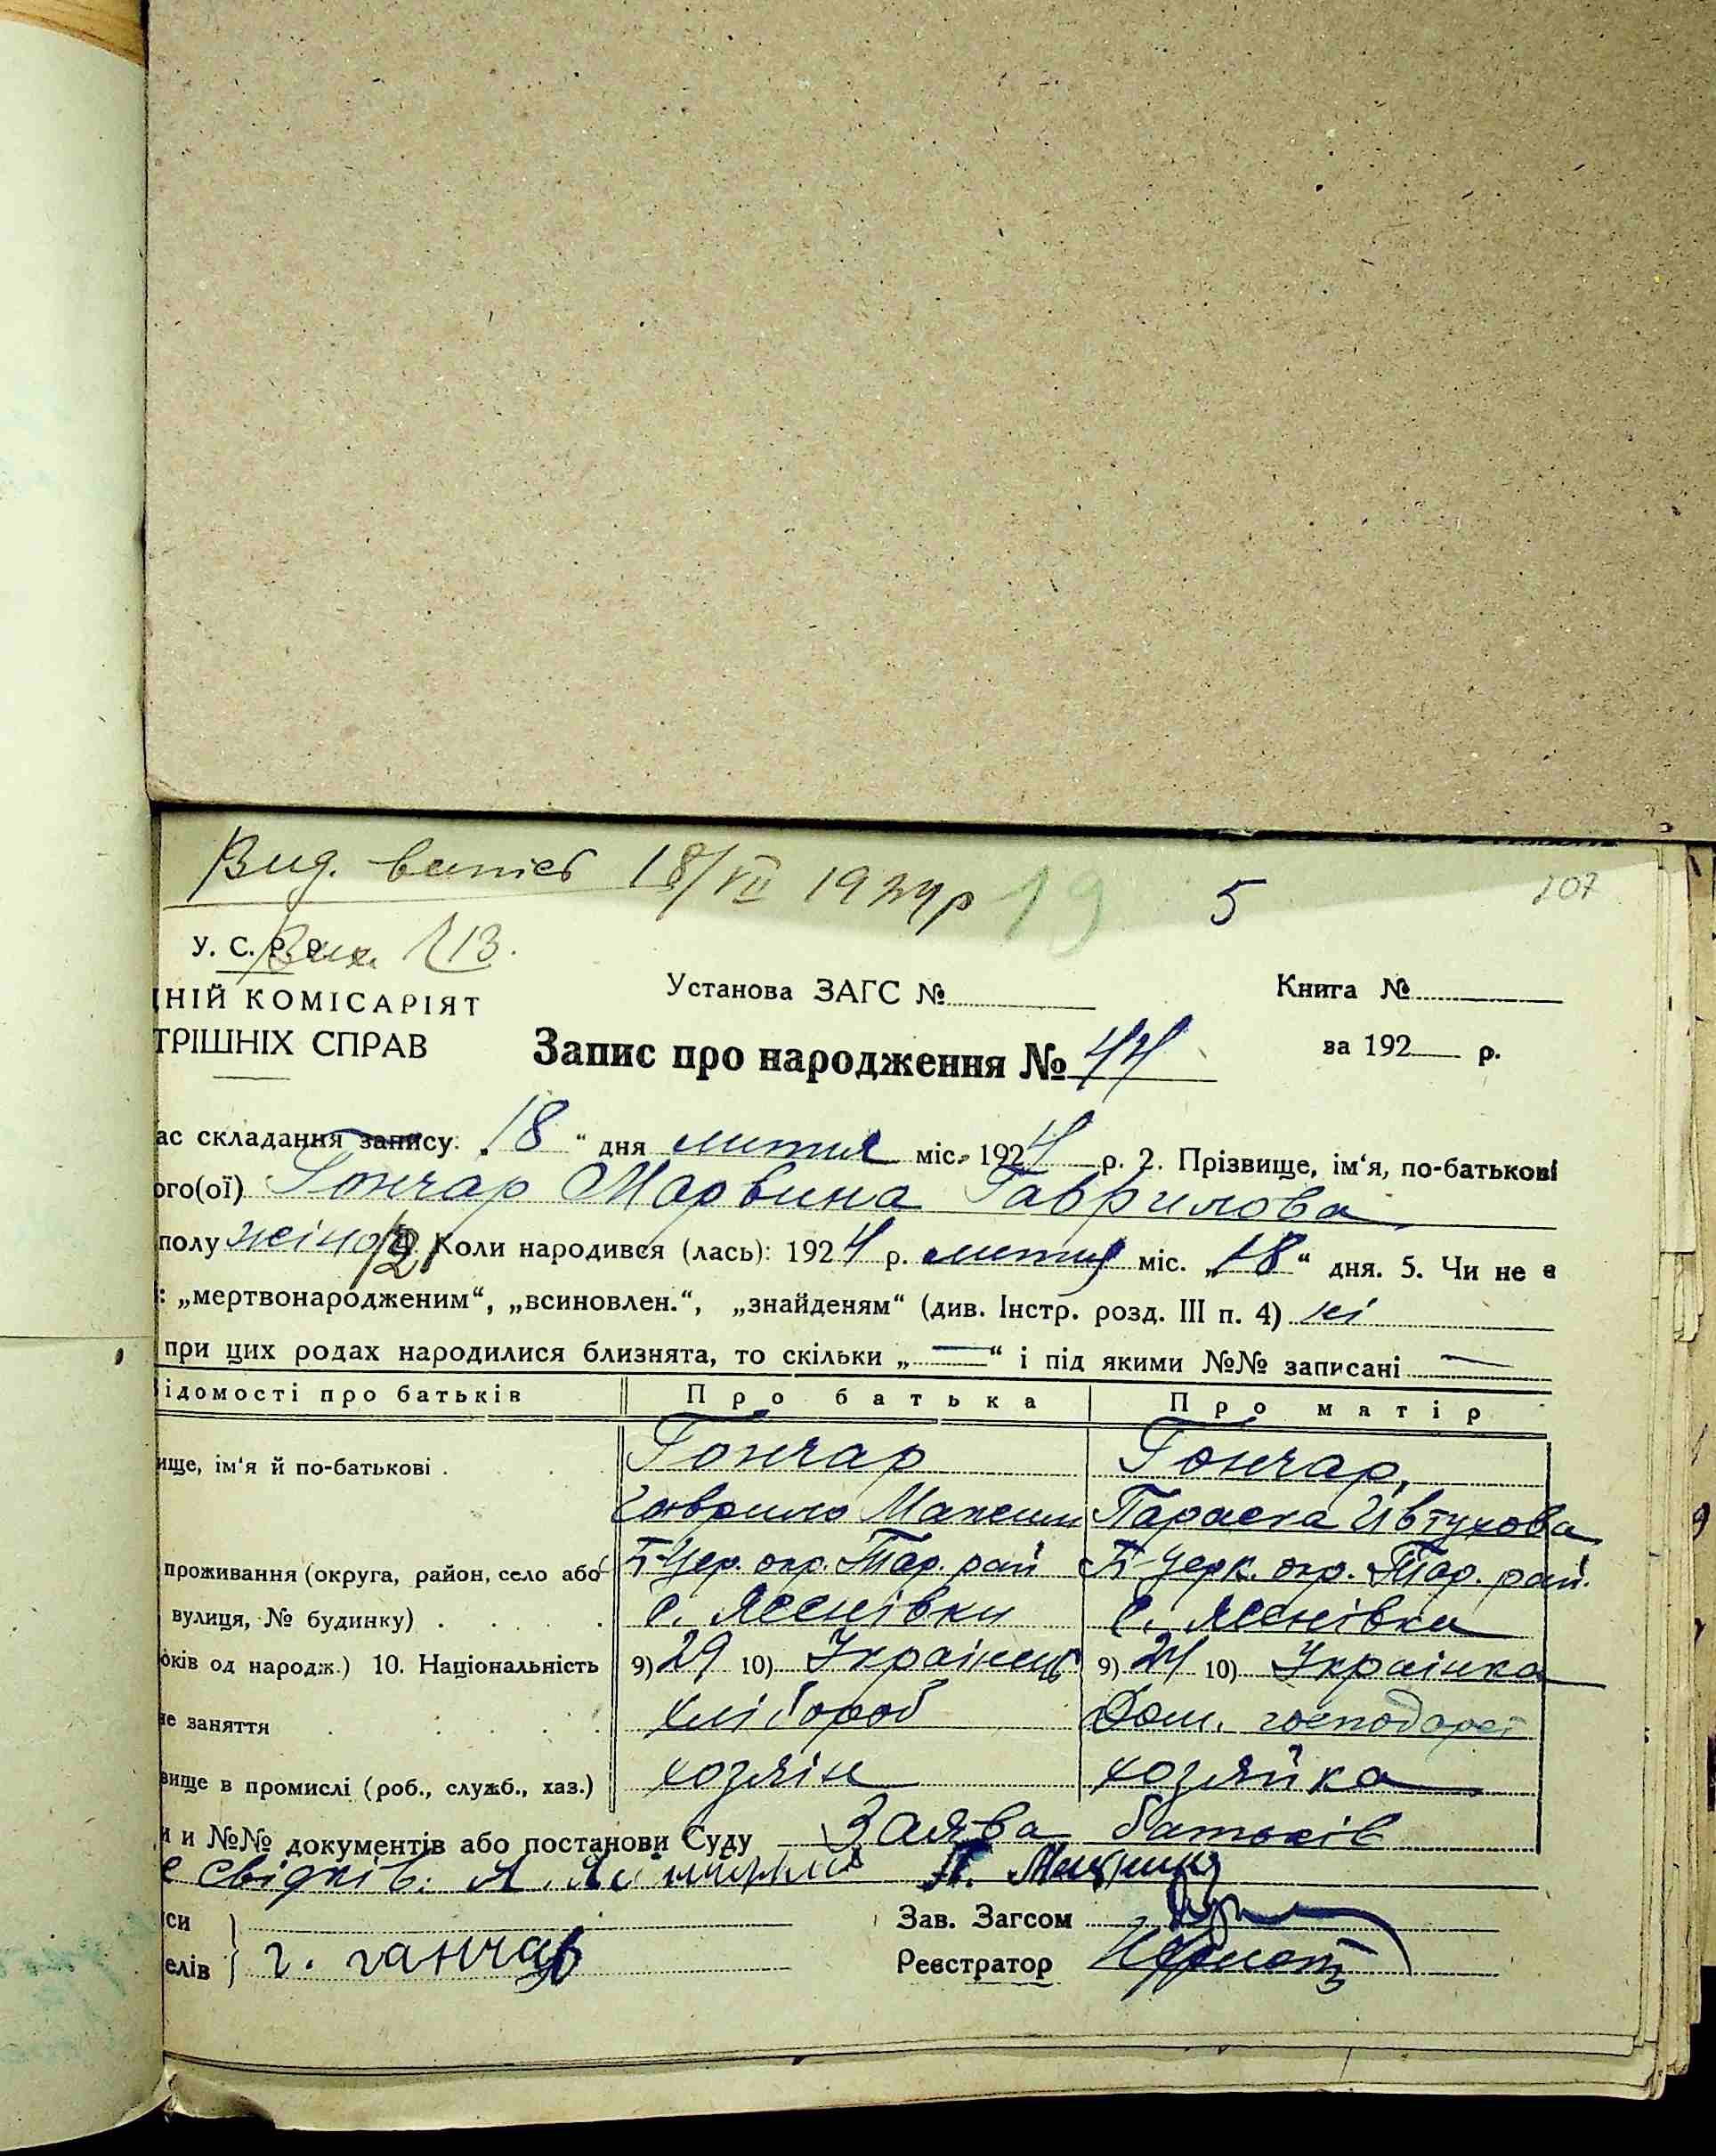 Вид. витяг 18/VII 1939р 19 5 207
У. С. Р. Р. Вих. 113.
НІЙ КОМІСАРІЯТ Установа ЗАГС № Книга №
ТРІШНІХ СПРАВ Запис про народження № 44 за 192 р.
ас складання запису. 18 “ дня лютня міс. 1924 р. 2. Прізвище, ім‘я, по-батькові
ого(ої) Гончар Марвина Гаврилова
полу жіноч. 4. Коли народився (лась): 1924 р. лютня міс. „18“ дня. 5. Чи не є
: „мертвонародженим“, „всиновлен.“, „знайденям“ (див. Інстр. розд. III п. 4) ні
при цих родах народилися близнята, то скільки „—“ і під якими №№ записані —
ідомості про батьків Про батька Про матір
ище, ім‘я й по-батькові . Гончар Гончар,
Гаврило Максим Параска Івтухова
проживання (округа, район, село або Б-Цер. окр. Тар. рай Б-Церк. окр. Тар. рай.
вулиця, № будинку) . с. Ясенівки с. Ясенівка
оків од народж.) 10. Національність 9) 29 10) Українець 9) 24 10) Українка
не заняття хлібороб Дом. господарст
вище в промислі (роб., служб., хаз.) хозяін хозяйка
и и №№ документів або постанови Суду Заява батьків
е свідків: А. П.
си Зав. Загсом
елів г. ганчар Реєстратор